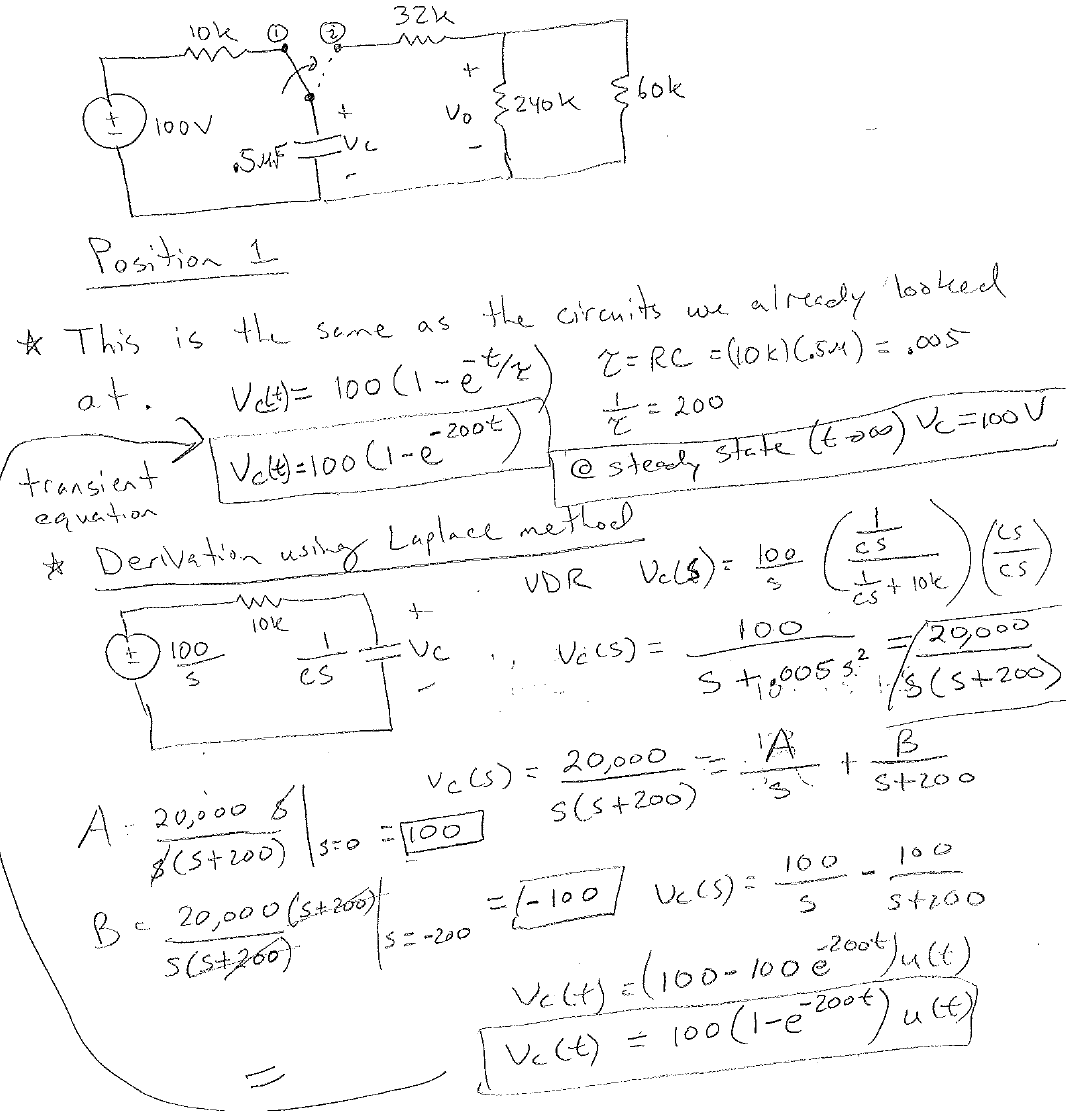 10k ① ② 32k
100V .5μF + Vc - + Vo - 240k 60k
Position 1
* This is the same as the circuits we already looked
at. Vc(t) = 100(1-e^-t/τ) τ = RC = (10k)(.5μ) = .005
1/τ = 200
transient equation Vc(t) = 100(1-e^-200t) @ steady state (t→∞) Vc = 100V
* Derivation using Laplace method
VDR Vc(s) = 100/s ((1/cs)/(1/cs + 10k)) (cs/cs)
10k
+ 100/s 1/cs + Vc -
Vc(s) = 100/(s + .005s²) = 20,000/(s(s+200))
Vc(s) = 20,000/(s(s+200)) = A/s + B/(s+200)
A = 20,000 s/(s(s+200)) |s=0 = 100
B = 20,000(s+200)/(s(s+200)) |s=-200 = -100 Vc(s) = 100/s - 100/(s+200)
Vc(t) = (100-100e^-200t)u(t)
= Vc(t) = 100(1-e^-200t)u(t)